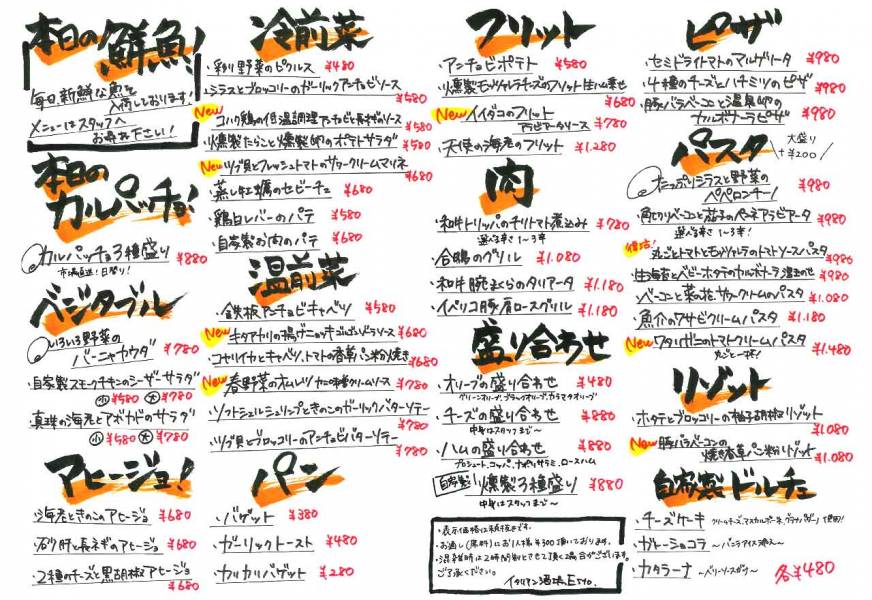 本日の鮮魚!
毎日新鮮な魚を
入荷しております!
メニューはスタッフへ
お尋ね下さい!
本日の
カルパッチョ!
カルパッチョ3種盛り ¥880
市場直送!日替り!
ベジタブル
いろいろ野菜の
バーニャカウダ ¥780
・自家製スモークチキンのシーザーサラダ
小¥580 大¥780
・真珠の海老とアボカドのサラダ
小¥580 大¥780
アヒージョ!
・海老ときのこのアヒージョ ¥680
・砂肝と長ネギのアヒージョ ¥680
・2種のチーズと黒胡椒アヒージョ
¥680
冷前菜
・彩り野菜のピクルス ¥480
・シラスとブロッコリーのガーリックアンチョビソース
¥580
New コハク鶏の低温調理アンチョビと長ネギのソース
¥580
・燻製たらこと燻製卵のポテトサラダ ¥580
New ツブ貝とフレッシュトマトのサワークリームマリネ
¥680
・蒸し牡蠣のセビーチェ
・鶏白レバーのパテ ¥580
・自家製お肉のパテ ¥680
温前菜
・鉄板アンチョビキャベツ ¥580
New キタアカリの揚げニョッキゴルゴンゾーラソース ¥680
・コヤリイカとキャベツ、トマトの香草パン粉焼き ¥680
New 春野菜のオムレツ カニ味噌クリームソース ¥780
・ソフトシェルシュリンプときのこのガーリックバターソテー
¥780
・ツブ貝とブロッコリーのアンチョビバターソテー
¥780
パン
・バゲット ¥380
・ガーリックトースト ¥480
・カリカリバゲット ¥280
フリット
・アンチョビポテト ¥580
・燻製モッツァレラチーズのフリット 生ハム乗せ
¥680
New イイダコのフリット
アラビアータソース ¥780
・天使の海老のフリット ¥1.280
肉
・和牛トリッパのチリトマト煮込み ¥780
選べる辛さ1〜3辛
・合鴨のグリル ¥1.080
・和牛腕まくらのタリアータ ¥1.180
・イベリコ豚肩ロースグリル ¥1.180
盛り合わせ
・オリーブの盛り合わせ ¥480
グリーンオリーブ、ブラックオリーブ、カラマタオリーブ
・チーズの盛り合わせ ¥880
中身はスタッフまで〜
・ハムの盛り合わせ ¥880
プロシュート、コッパ、ナポリサラミ、ロースハム
自家製 燻製3種盛り ¥880
中身はスタッフまで〜
・表示価格は税抜きです。
・お通し(席料)にお1人様¥300頂いております。
・混雑時は2時間制とさせて頂く場合がございます。
ご了承ください。
イタリアン酒場
ピザ
・セミドライトマトのマルゲリータ ¥980
・4種のチーズとハチミツのピザ ¥980
・豚バラベーコンと温泉卵の
カルボナーラピザ ¥980
パスタ
大盛り
+¥200
たっぷりシラスと野菜の
ペペロンチーノ ¥980
・角切りベーコンと茄子のペンネアラビアータ ¥980
選べる辛さ1〜3辛!
復活! 丸ごとトマトとモッツァレラのトマトソースパスタ
¥980
・生海苔とベビーホタテのカルボナーラ 温玉のせ
¥980
・ベーコンと菜の花、サワークリームのパスタ ¥1.080
・魚介のワサビクリームパスタ ¥1.180
New ワタリガニのトマトクリームパスタ
丸ごと一杯! ¥1.480
リゾット
・ホタテとブロッコリーの柚子胡椒リゾット
¥1.080
New 豚バラベーコンの
焼き香草パン粉リゾット ¥1.080
自家製ドルチェ
・チーズケーキ クリームチーズ、マスカルポーネ、グラナパダーノ使用!
・ガトーショコラ 〜バニラアイス添え〜
・カタラーナ 〜ベリーソースがけ〜 各¥480